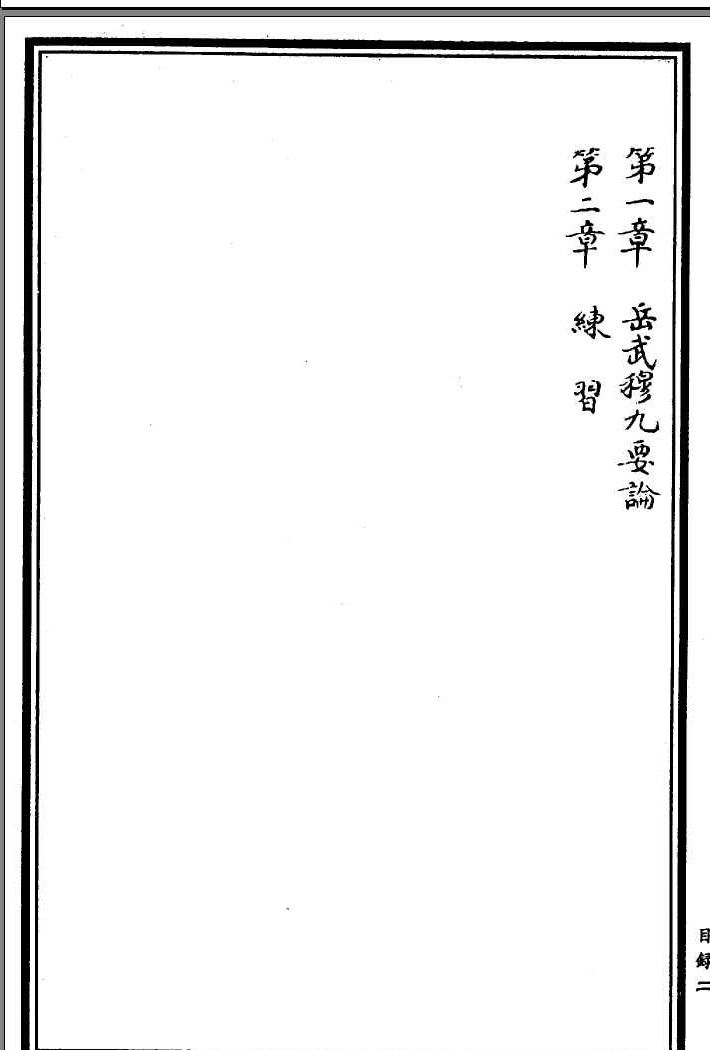 第一章　岳武穆九要論
第二章　練習
目録二